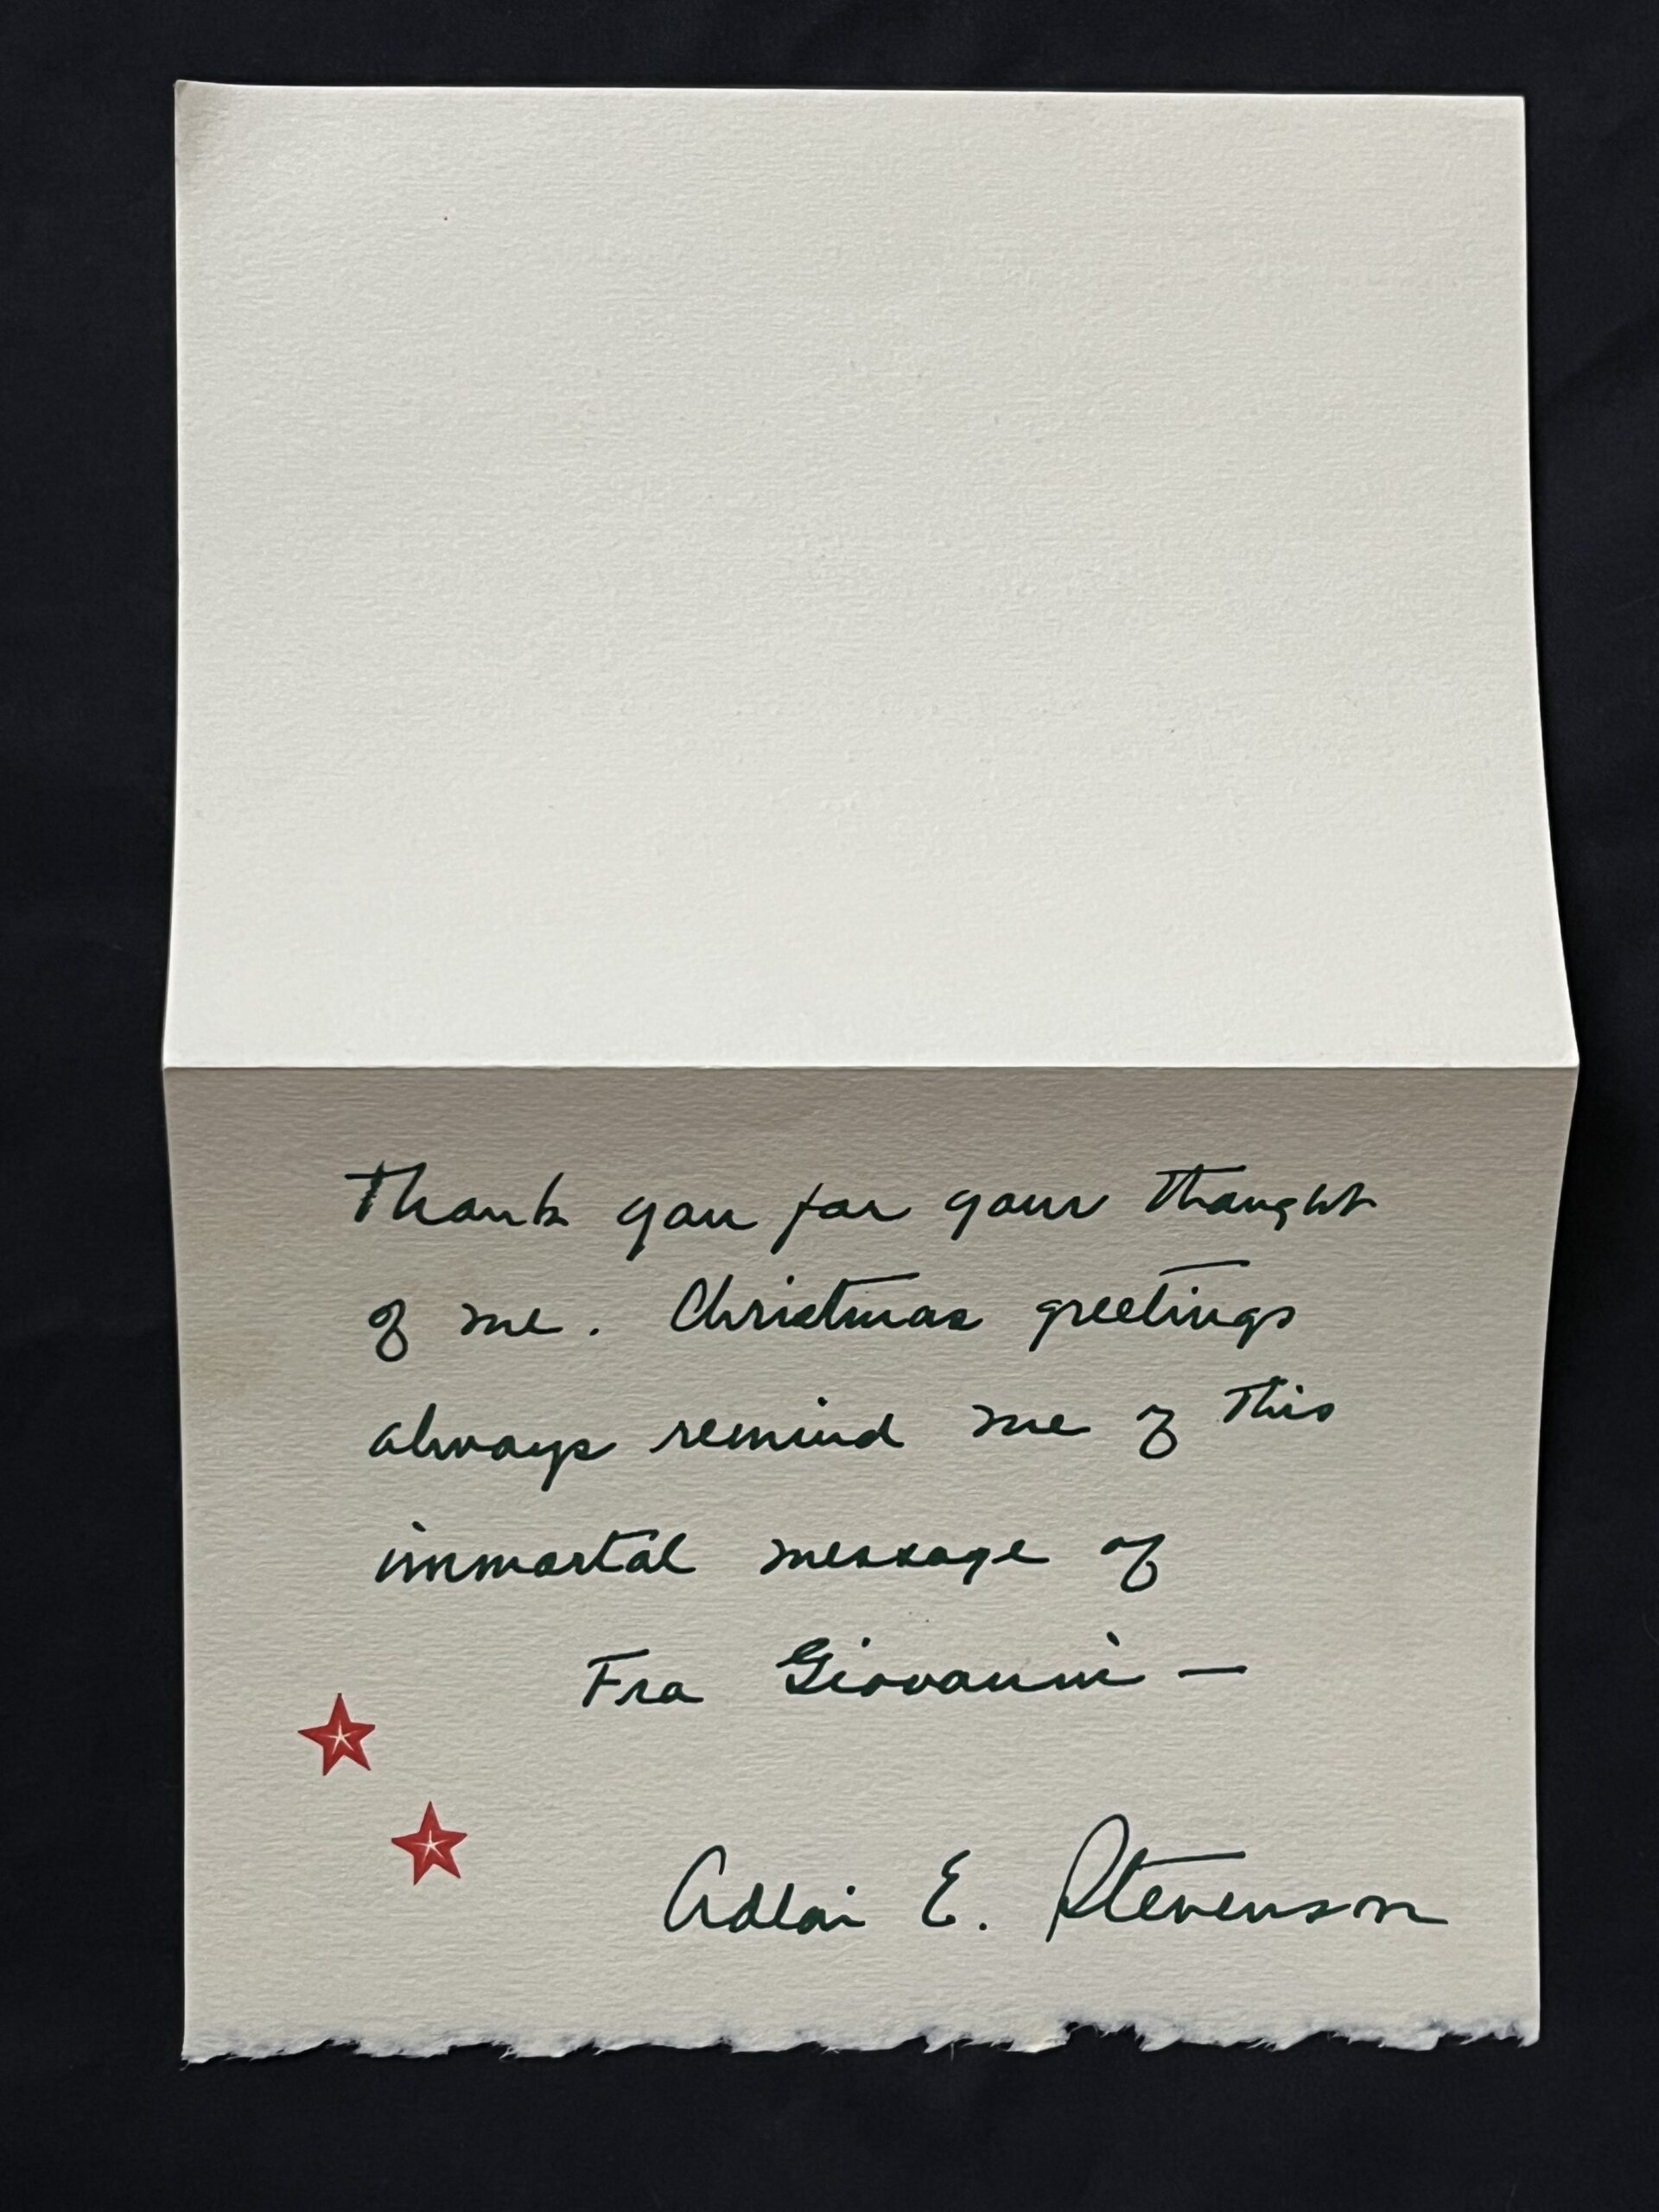 Thank you for your thought
of me. Christmas greetings
always remind me of this
immortal message of
Fra Giovanni —
Adlai E. Stevenson